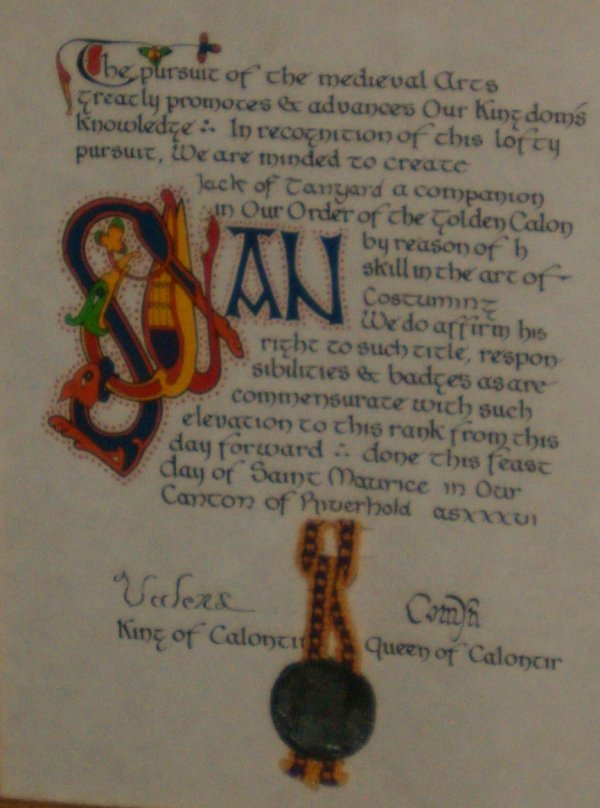 The pursuit of the medieval Arts
greatly promotes & advances Our Kingdom's
Knowledge ∴ In recognition of this lofty
pursuit, We are minded to create
Jack of Tanyard a companion
in Our Order of the Golden Calon
by reason of h
skill in the art of
Costuming
We do affirm his
right to such title, respon
sibilities & badges as are
commensurate with such
elevation to this rank from this
day forward ∴ done this feast
day of Saint Maurice in Our
Canton of Riverhold asxxxvi
King of Calontir
Queen of Calontir